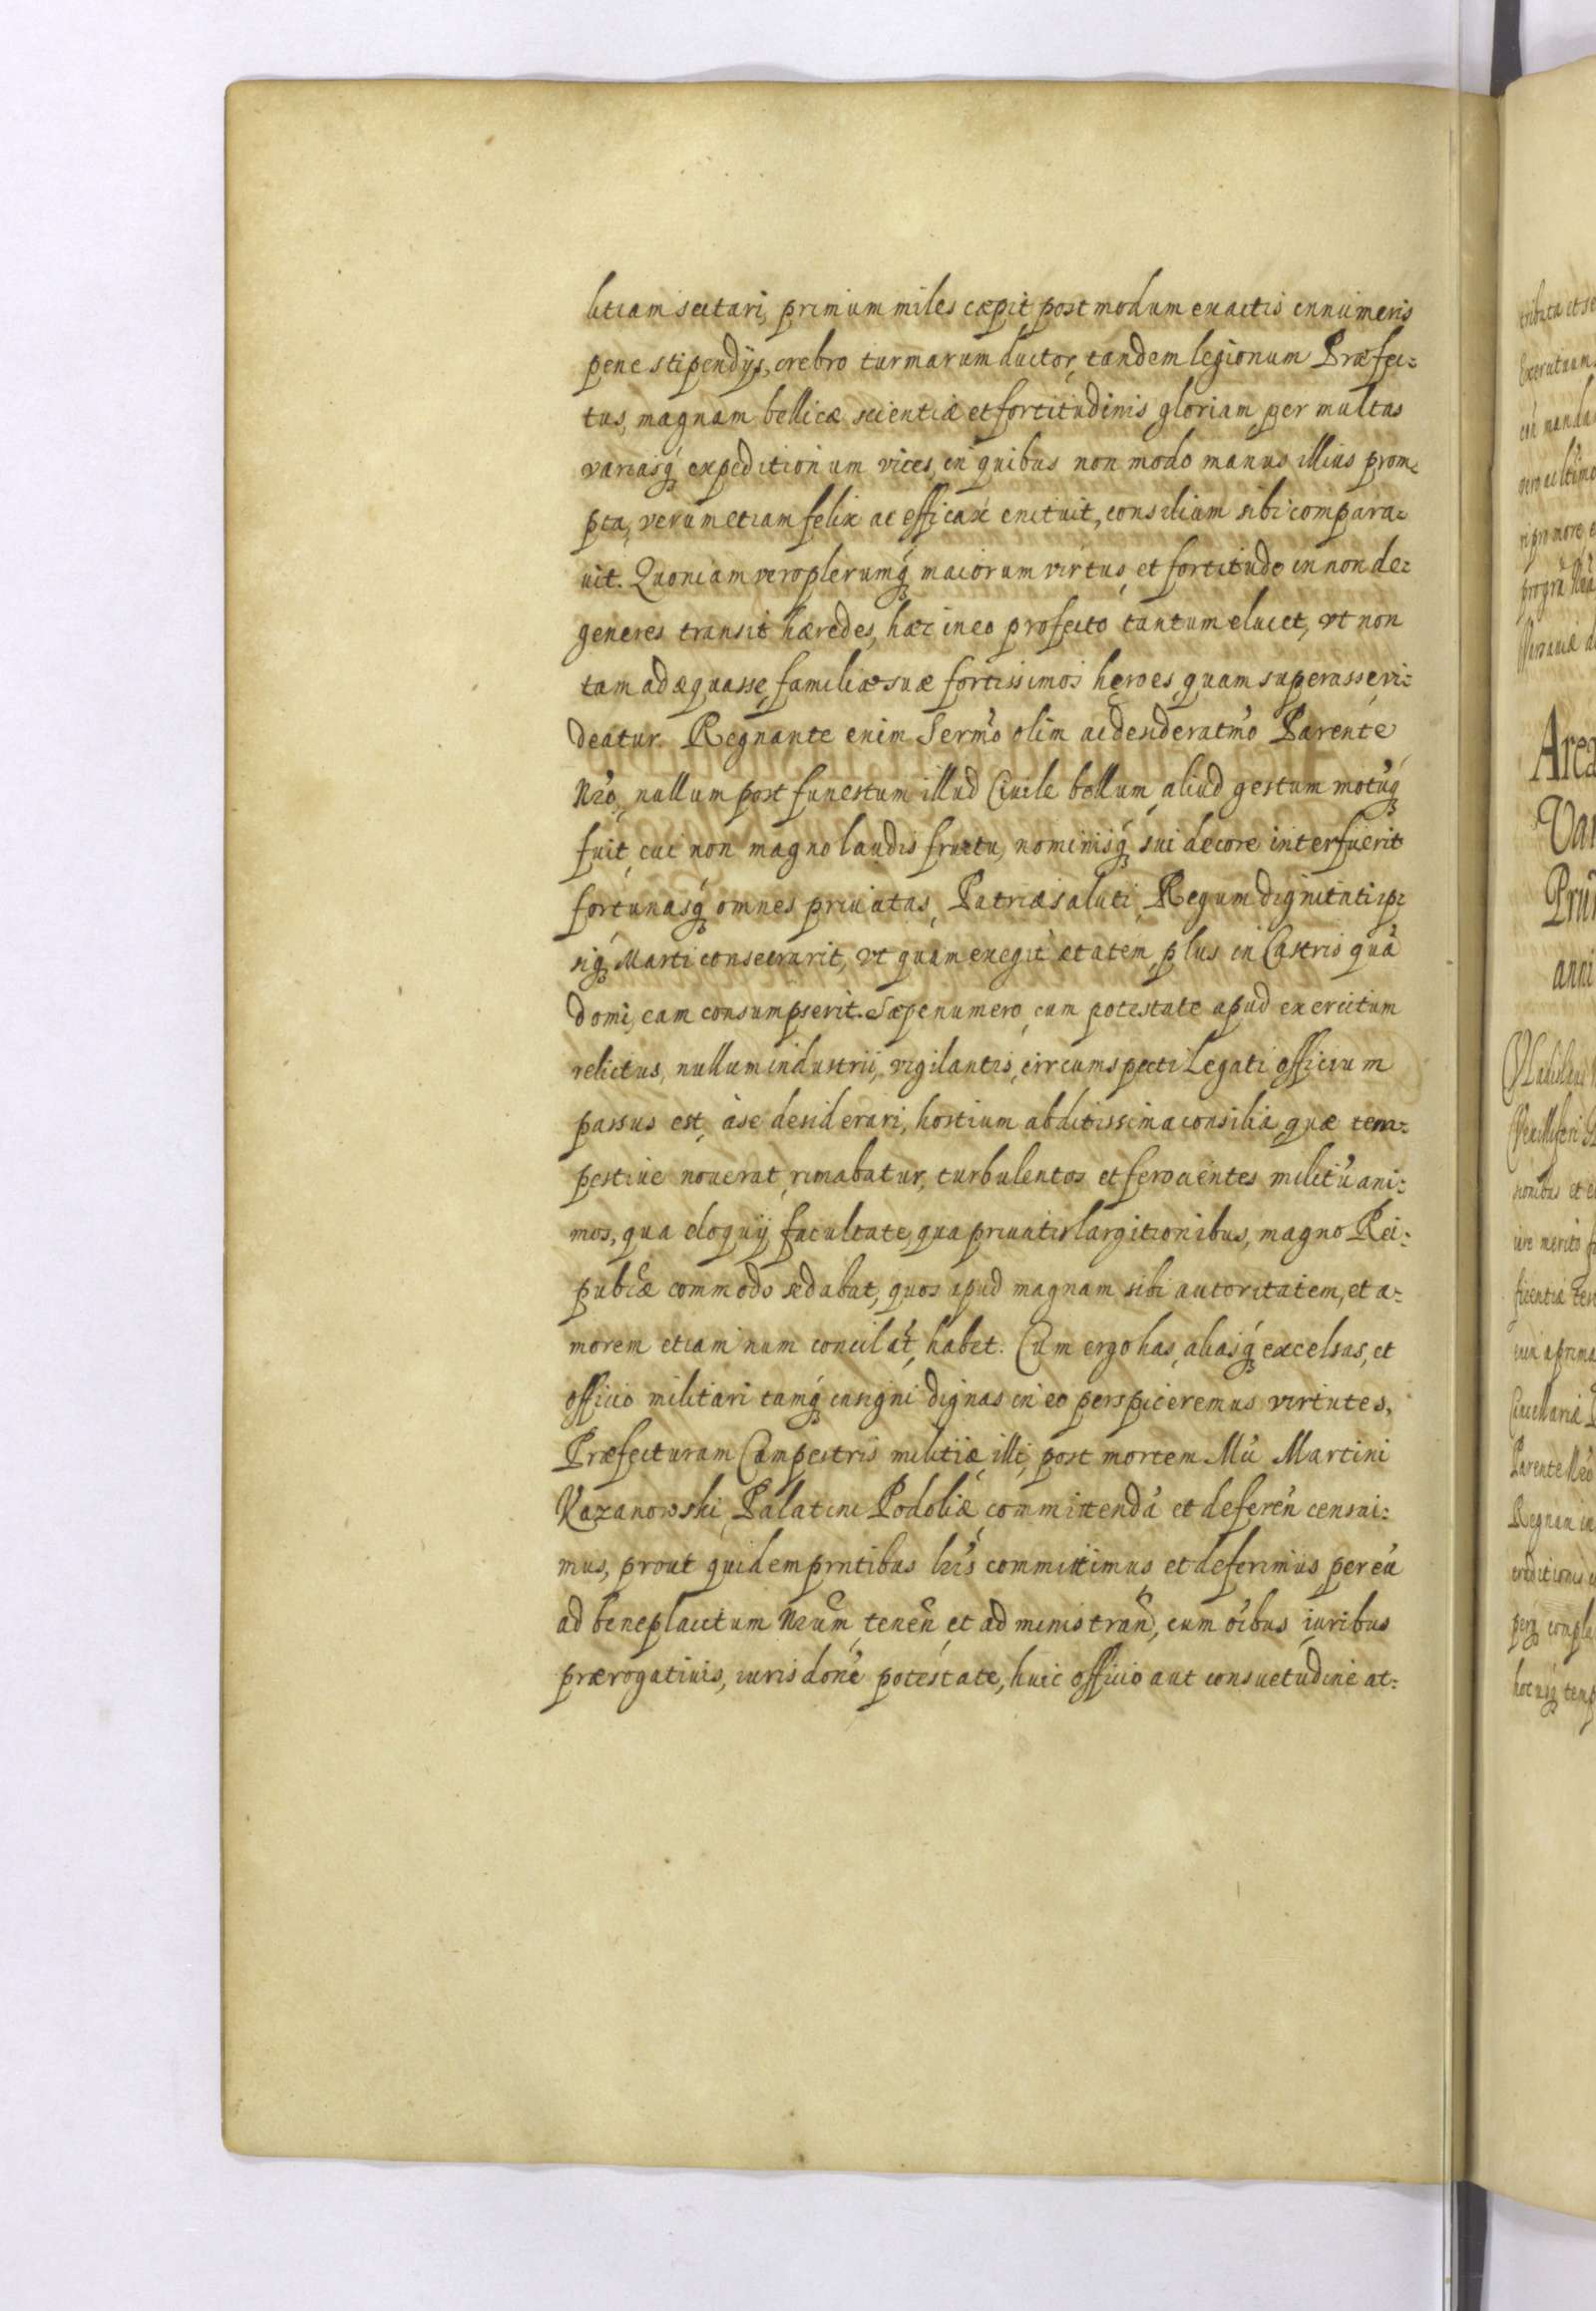 litiam sectari, primum miles cæpit post modum exactis innumeris
pene stipendijs, crebro turmarum ductor, tandem legionum Præfec:
tus, magnam bellicæ scientiæ et fortitudinis gloriam per multas
variasq́ʒ expeditionum vices, in quibus non modo manus illius prom:
pta, verum etiam felix ac efficax enituit, consilium sibi compara:
uit. Quoniam vero plerumq́ʒ maiorum virtus et fortitudo in non de:
generes transit hæredes, hæc in eo profecto tantum elucet, vt non
tam adæquasse, familiæ suæ fortissimos heroes, quam superasse vi:
deatur. Regnante enim Sermo olim ac desideratmo Parente
Nro, nullum post funestum illud Ciuile bellum, aliud gestum motuq́ʒ
fuit, cui non magno laudis fructu, nominisq́ʒ sui decore interfuerit
fortunasq́ʒ omnes priuatas, Patriæ saluti, Regum dignitati ip:
siq́ʒ Marti consecrarit, vt quam exegit ætatem, plus in Castris quã
domi, eam consumpserit. Sæpenumero, cum potestate apud exercitum
relictus, nullum industrii, vigilantis, circumspecti Legati officium
passus est, à se desiderari, hostium abditissima consilia, quæ tem:
pestiue nouerat, rimabatur, turbulentos et ferocientes militũ ani:
mos, qua eloquij facultate, qua priuatis largitionibus, magno Rei:
pubcæ commodo sedabat, quos apud magnam sibi autoritatem, et a:
morem etiam num concilat, habet. Cum ergo has, aliasq́ʒ excelsas, et
officio militari tamq́ʒ insigni dignas in eo perspiceremus virtutes,
Præfecturam Campestris militiæ illi, post mortem Mci Martini
Kazanowski, Palatini Podoliæ, committendã et deferen̄ censui:
mus, prout quidem prntibus lris committimus et deferimus per eũ
ad beneplacitum Nrum, tenen̄ et administran̄d, cum oibus iuribus
prærogatiuis, iurisdone potestate, huic officio aut consuetudine at: